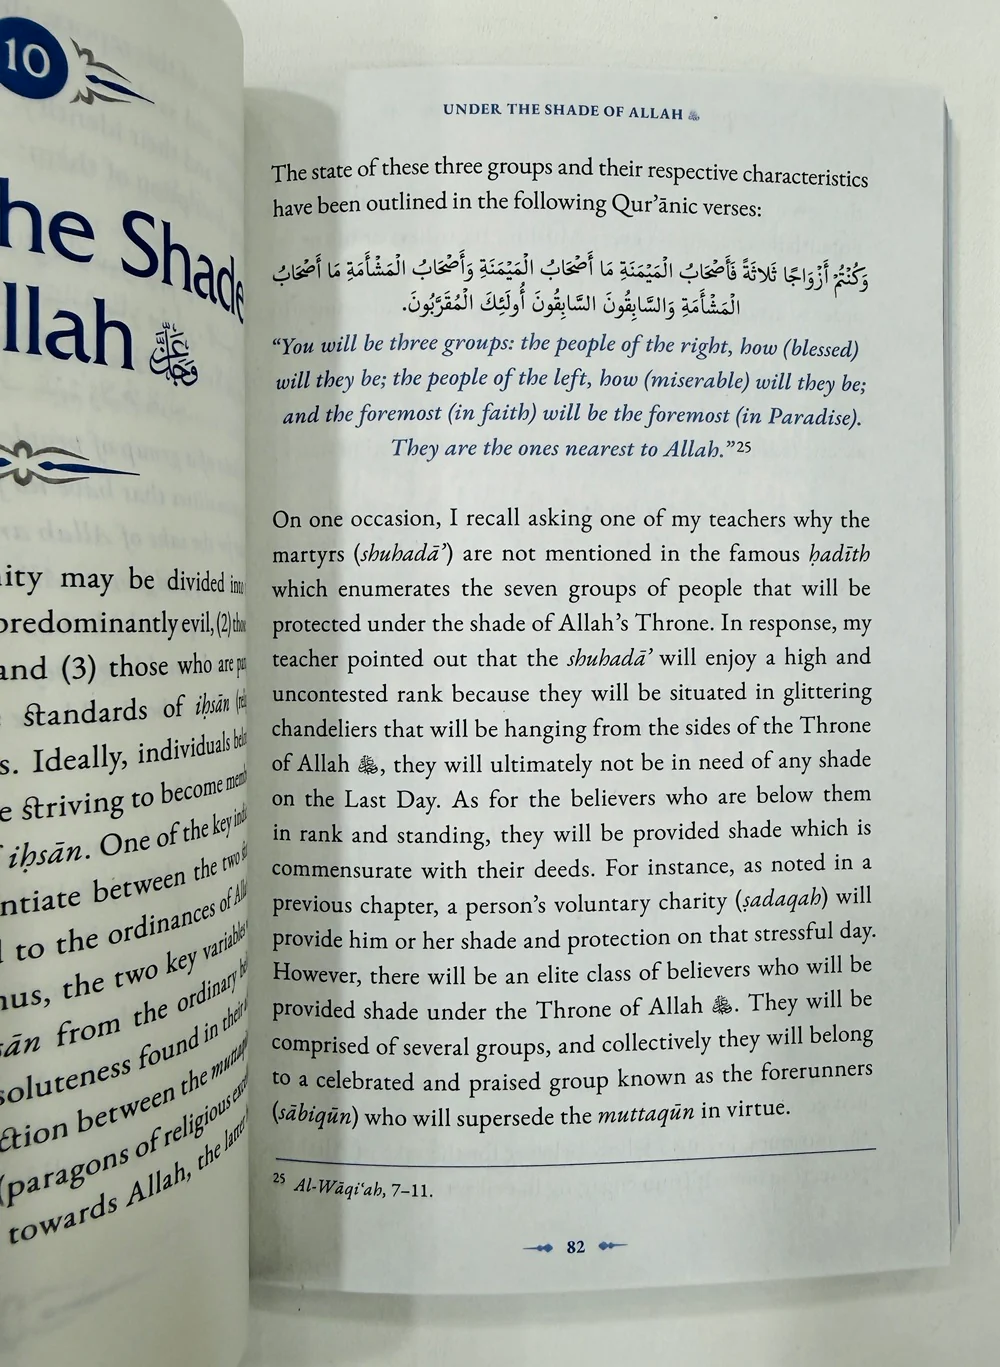 10
he Shade
llah
ity may be divided into
predominantly evil, (2)
and (3) those who are
standards of iḥsān
s. Ideally, individuals
e striving to become
iḥsān. One of the key
ntiate between the two
to the ordinances of
us, the two key variables
ān from the ordinary
soluteness found in their
ction between the
(paragons of religious
towards Allah, the latter
UNDER THE SHADE OF ALLAH ﷻ
The state of these three groups and their respective characteristics
have been outlined in the following Qur’ānic verses:
وَكُنْتُمْ أَزْوَاجًا ثَلَاثَةً فَأَصْحَابُ الْمَيْمَنَةِ مَا أَصْحَابُ الْمَيْمَنَةِ وَأَصْحَابُ الْمَشْأَمَةِ مَا أَصْحَابُ
الْمَشْأَمَةِ وَالسَّابِقُونَ السَّابِقُونَ أُولَئِكَ الْمُقَرَّبُونَ.
“You will be three groups: the people of the right, how (blessed)
will they be; the people of the left, how (miserable) will they be;
and the foremost (in faith) will be the foremost (in Paradise).
They are the ones nearest to Allah.”25
On one occasion, I recall asking one of my teachers why the
martyrs (shuhadā’) are not mentioned in the famous ḥadīth
which enumerates the seven groups of people that will be
protected under the shade of Allah’s Throne. In response, my
teacher pointed out that the shuhadā’ will enjoy a high and
uncontested rank because they will be situated in glittering
chandeliers that will be hanging from the sides of the Throne
of Allah ﷻ, they will ultimately not be in need of any shade
on the Last Day. As for the believers who are below them
in rank and standing, they will be provided shade which is
commensurate with their deeds. For instance, as noted in a
previous chapter, a person’s voluntary charity (ṣadaqah) will
provide him or her shade and protection on that stressful day.
However, there will be an elite class of believers who will be
provided shade under the Throne of Allah ﷻ. They will be
comprised of several groups, and collectively they will belong
to a celebrated and praised group known as the forerunners
(sābiqūn) who will supersede the muttaqūn in virtue.
25 Al-Wāqi‘ah, 7–11.
82